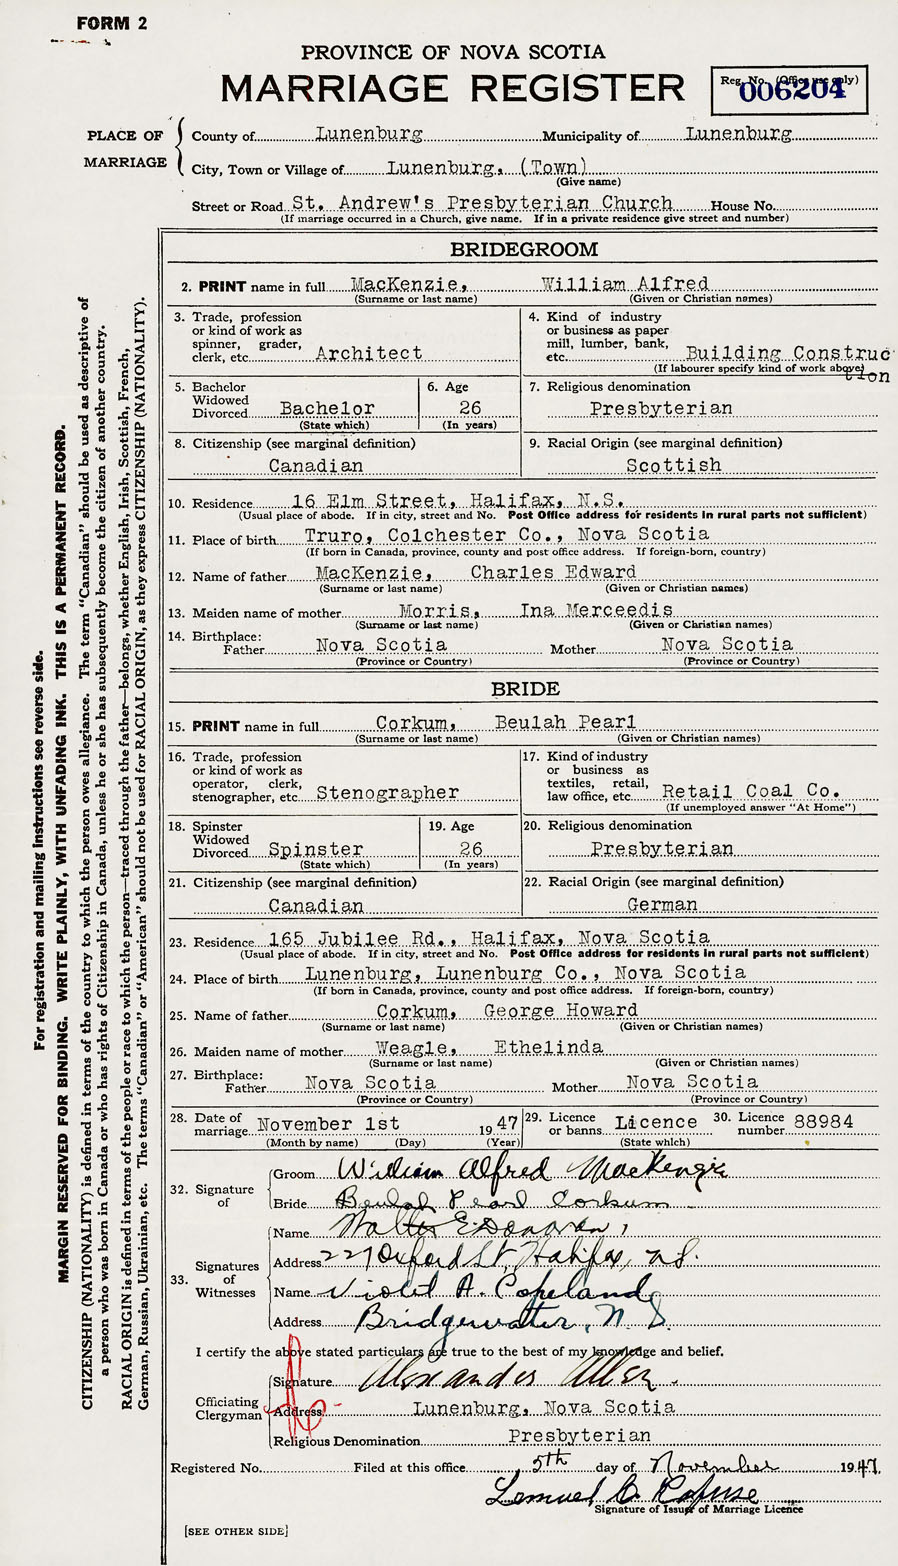 FORM 2
PROVINCE OF NOVA SCOTIA
MARRIAGE REGISTER
Reg. No. (Office use only)
006204
PLACE OF MARRIAGE
County of Lunenburg Municipality of Lunenburg
City, Town or Village of Lunenburg, (Town)
(Give name)
Street or Road St. Andrew's Presbyterian Church House No.
(If marriage occurred in a Church, give name. If in a private residence give street and number)
BRIDEGROOM
2. PRINT name in full MacKenzie, William Alfred
(Surname or last name) (Given or Christian names)
3. Trade, profession
or kind of work as
spinner, grader,
clerk, etc. Architect
4. Kind of industry
or business as paper
mill, lumber, bank,
etc. Building Construc
tion
(If labourer specify kind of work above)
5. Bachelor
Widowed
Divorced Bachelor
(State which)
6. Age
26
(In years)
7. Religious denomination
Presbyterian
8. Citizenship (see marginal definition)
Canadian
9. Racial Origin (see marginal definition)
Scottish
10. Residence 16 Elm Street, Halifax, N.S.
(Usual place of abode. If in city, street and No. Post Office address for residents in rural parts not sufficient)
11. Place of birth Truro, Colchester Co., Nova Scotia
(If born in Canada, province, county and post office address. If foreign-born, country)
12. Name of father MacKenzie, Charles Edward
(Surname or last name) (Given or Christian names)
13. Maiden name of mother Morris, Ina Merceedis
(Surname or last name) (Given or Christian names)
14. Birthplace:
Father Nova Scotia Mother Nova Scotia
(Province or Country) (Province or Country)
BRIDE
15. PRINT name in full Corkum, Beulah Pearl
(Surname or last name) (Given or Christian names)
16. Trade, profession
or kind of work as
operator, clerk,
stenographer, etc. Stenographer
17. Kind of industry
or business as
textiles, retail,
law office, etc. Retail Coal Co.
(If unemployed answer "At Home")
18. Spinster
Widowed
Divorced Spinster
(State which)
19. Age
26
(In years)
20. Religious denomination
Presbyterian
21. Citizenship (see marginal definition)
Canadian
22. Racial Origin (see marginal definition)
German
23. Residence 165 Jubilee Rd., Halifax, Nova Scotia
(Usual place of abode. If in city, street and No. Post Office address for residents in rural parts not sufficient)
24. Place of birth Lunenburg, Lunenburg Co., Nova Scotia
(If born in Canada, province, county and post office address. If foreign-born, country)
25. Name of father Corkum, George Howard
(Surname or last name) (Given or Christian names)
26. Maiden name of mother Weagle, Ethelinda
(Surname or last name) (Given or Christian names)
27. Birthplace:
Father Nova Scotia Mother Nova Scotia
(Province or Country) (Province or Country)
28. Date of
marriage November 1st 1947
(Month by name) (Day) (Year)
29. Licence
or banns Licence
(State which)
30. Licence
number 88984
32. Signature of
Groom William Alfred MacKenzie
Bride Beulah Pearl Corkum
33. Signatures of Witnesses
Name Walter E. Donovan,
Address 227 Oxford St, Halifax, N.S.
Name Violet A. Copeland
Address Bridgewater, N.S.
I certify the above stated particulars are true to the best of my knowledge and belief.
Officiating Clergyman
Signature Alexander Allen.
Address Lunenburg, Nova Scotia
Religious Denomination Presbyterian
Registered No. Filed at this office 5th day of November 1947.
Lemuel C. Rafuse
Signature of Issuer of Marriage Licence
[SEE OTHER SIDE]
For registration and mailing instructions see reverse side.
MARGIN RESERVED FOR BINDING. WRITE PLAINLY, WITH UNFADING INK. THIS IS A PERMANENT RECORD.
CITIZENSHIP (NATIONALITY) is defined in terms of the country to which the person owes allegiance. The term "Canadian" should be used as descriptive of
a person who was born in Canada or who has rights of Citizenship in Canada, unless he or she has subsequently become the citizen of another country.
RACIAL ORIGIN is defined in terms of the people or race to which the person—traced through the father—belongs, whether English, Irish, Scottish, French,
German, Russian, Ukrainian, etc. The terms "Canadian" or "American" should not be used for RACIAL ORIGIN, as they express CITIZENSHIP (NATIONALITY).